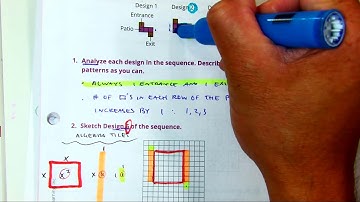 Design 1
Design 2
Entrance
Patio
Exit
1. Analyze each design in the sequence. Describ
patterns as you can.
• ALWAYS 1 ENTRANCE AND 1 EXI
• # OF □'S IN EACH ROW OF THE P
INCREASES BY 1 ∴ 1, 2, 3
2. Sketch Design of the sequence.
ALGEBRA TILES
X
X X²
1
X
1